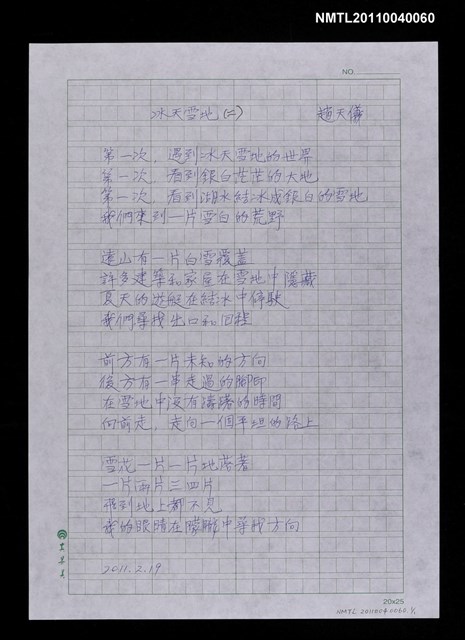 NMTL20110040060
NO.
冰天雪地(二) 趙天儀
第一次，遇到冰天雪地的世界
第一次，看到銀白茫茫的大地
第一次，看到湖水結冰成銀白的雪地
我們來到一片雪白的荒野
遠山有一片白雪覆蓋
許多建築和家屋在雪地中隱藏
夏天的遊艇在結冰中停駛
我們尋找出口和回程
前方有一片未知的方向
後方有一串走過的腳印
在雪地中沒有躊躇的時間
向前走，走向一個平坦的路上
雪花一片一片地落著
一片兩片三四片
飛到地上都不見
我的眼睛在朦朧中尋找方向
2011.2.19
20x25
NMTL 20110040060.1/1